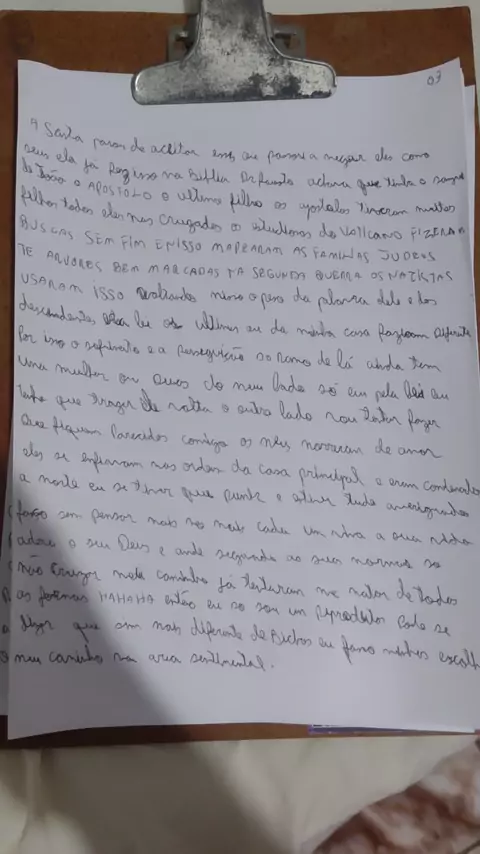 03
A Senta parou de aceitar esses eu passaria a negar eles como
seus ela já fez isso na Bíblia achava que tinha o sangue
de João o APOSTOLO o ultimo filho os apostolos tiveram muitos
filhos todos eles nas cruzadas os estudiosos do VATICANO FIZERAM
BUSCAS SEM FIM E NISSO MAPEARAM AS FAMILIAS JUDEUS
TE ARVORES BEM MARCADAS NA SEGUNDA GUERRA OS NAZISTAS
USARAM ISSO nisso o peso da palavra dele e dos
descendentes lei os ultimos eu da minha casa faziam diferente
Por isso o e a Perseguição so ramo de lá ainda tem
uma mulher ou duas do meu lado só eu pela lei eu
tenho que trazer de volta o outro lado vou tentar fazer
que fiquem Parecidos comigo os meus morreram de amor
eles se enfiavam nas ordem da casa principal e eram condenados
a morte eu se tiver que punir e estiver tudo
faço sem pensar mais no mais cada um viva a sua vida
adore o seu Deus e ande segundo as suas normas so
não cruzar meu caminho já tentaram me matar de todas
as formas HAHAHA então eu so sou um reprodutor Pode se
dizer que sim mais diferente de Bichos eu faço minhas escolhas
meu caminho na area sentimental.